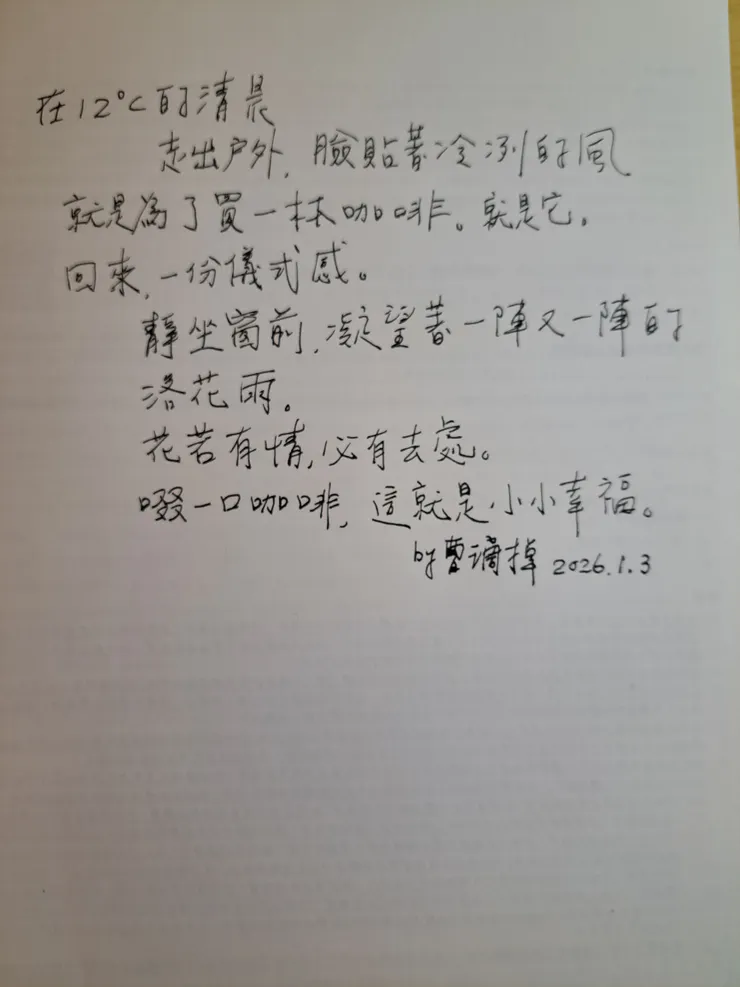 在12°C的清晨
走出户外，臉貼著冷冽的風
就是為了買一杯咖啡。就是它。
回來，一份儀式感。
靜坐窗前，凝望著一陣又一陣的
洛花雨。
花若有情，必有去處。
啜一口咖啡，這就是小小幸福。
by 2026.1.3